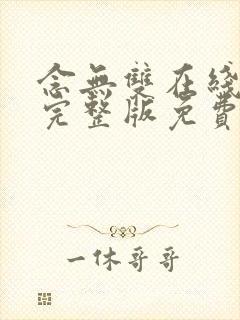 念無雙在綫
完整版免費
一休哥哥